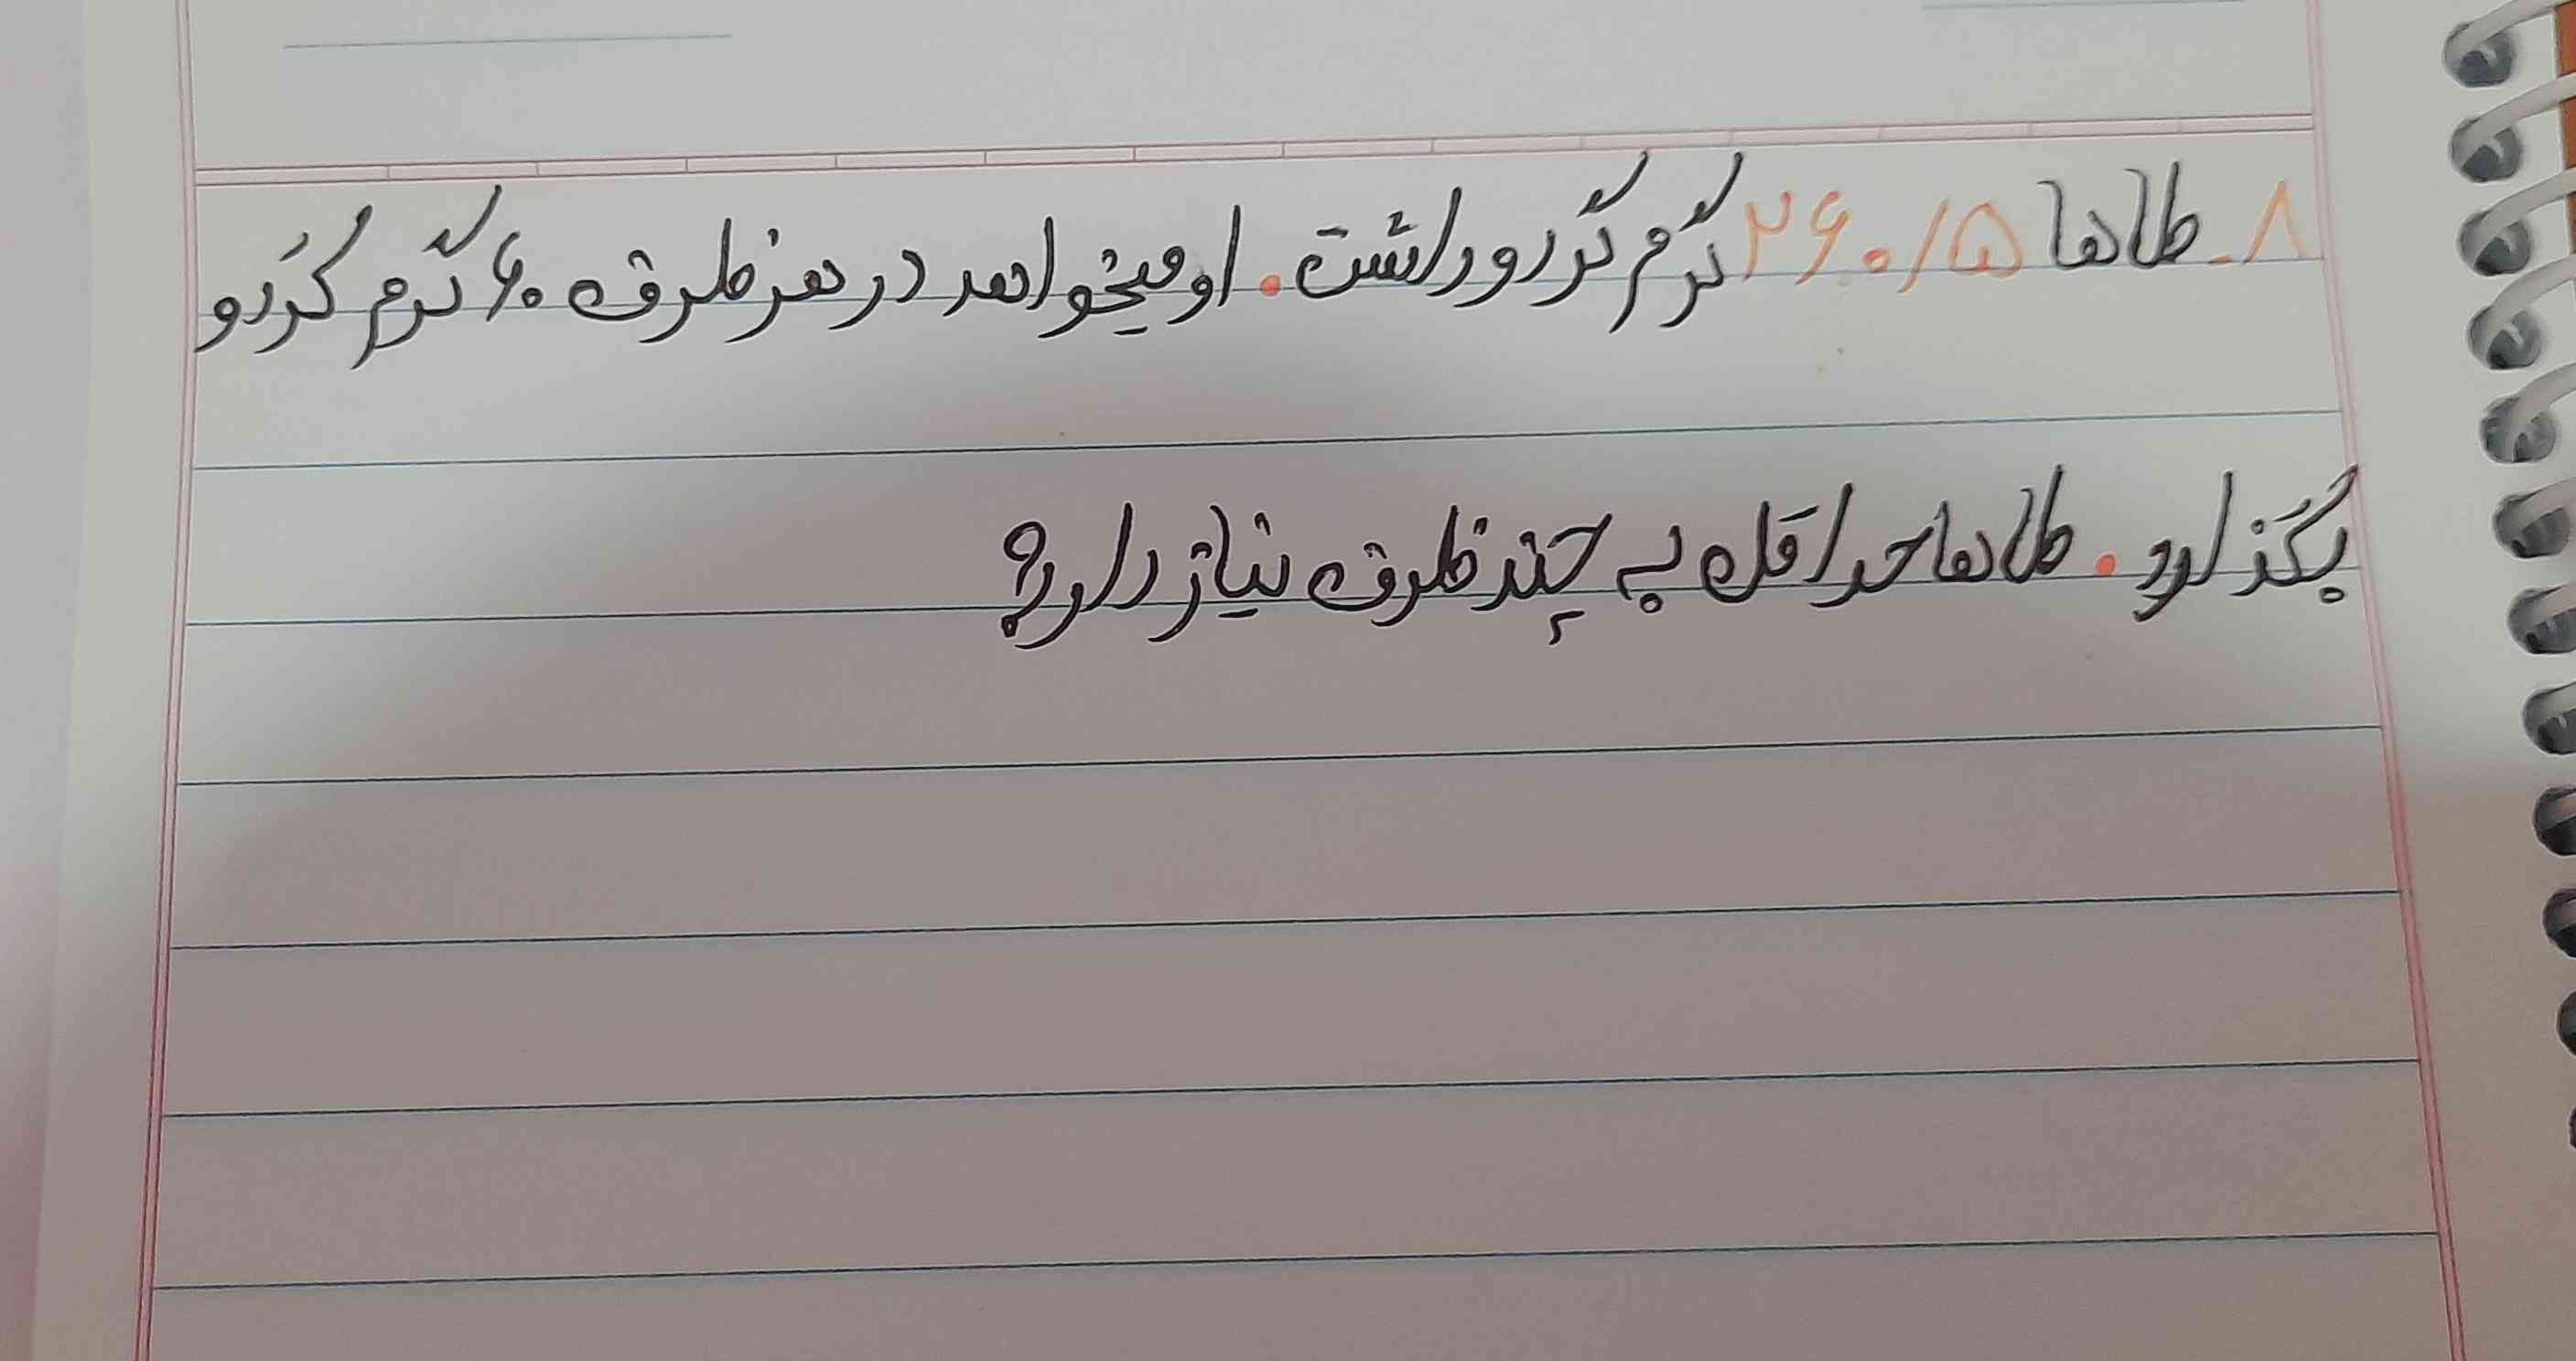 ۸ـ طاها ۲۶۰/۵ گرم گردو داشت. او میخواهد در هر ظرف ۶۰ گرم گردو
بگذارد. طاها حداقل به چند ظرف نیاز دارد؟